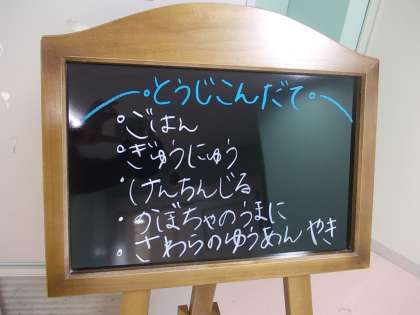 ・とうじこんだて・
・ごはん
・ぎゅうにゅう
・けんちんじる
・かぼちゃのうまに
・さわらのゆうあんやき